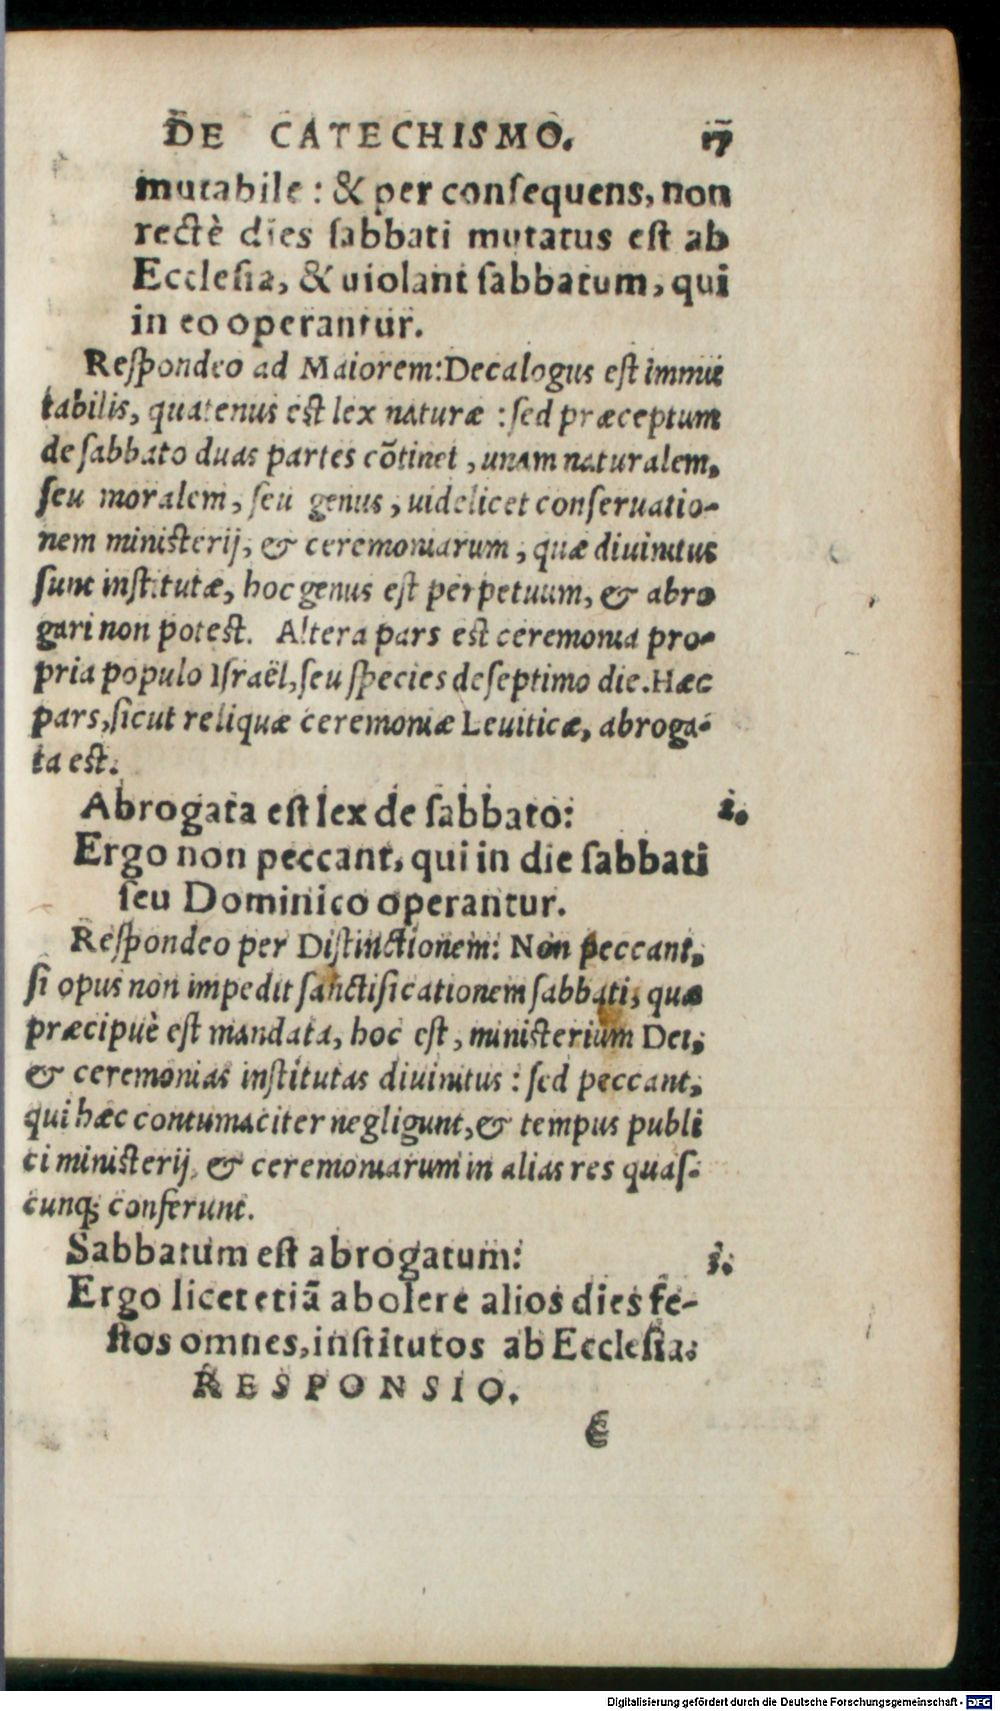 DE CATECHISMO. 17
mutabile: & per consequens, non
rectè dies sabbati mutatus est ab
Ecclesia, & uiolant sabbatum, qui
in eo operantur.
Respondeo ad Maiorem: Decalogus est immu
tabilis, quatenus est lex naturæ: sed præceptum
de sabbato duas partes cōtinet, unam naturalem,
seu moralem, seu genus, uidelicet conseruatio-
nem ministerij, & ceremoniarum, quæ diuinitus
sunt institutæ, hoc genus est perpetuum, & abro
gari non potest. Altera pars est ceremonia pro-
pria populo Israël, seu species de septimo die. Hæc
pars, sicut reliquæ ceremoniæ Leuiticæ, abroga-
ta est.
Abrogata est lex de sabbato: 2.
Ergo non peccant, qui in die sabbati
seu Dominico operantur.
Respondeo per Distinctionem: Non peccant,
si opus non impedit sanctificationem sabbati, quæ
præcipuè est mandata, hoc est, ministerium Dei,
& ceremonias institutas diuinitus: sed peccant,
qui hæc contumaciter negligunt, & tempus publi
ci ministerij, & ceremoniarum in alias res quas-
cunq; conferunt.
Sabbatum est abrogatum: 3.
Ergo licet etiā abolere alios dies fe-
stos omnes, institutos ab Ecclesia.
RESPONSIO.
C
Digitalisierung gefördert durch die Deutsche Forschungsgemeinschaft - DFG